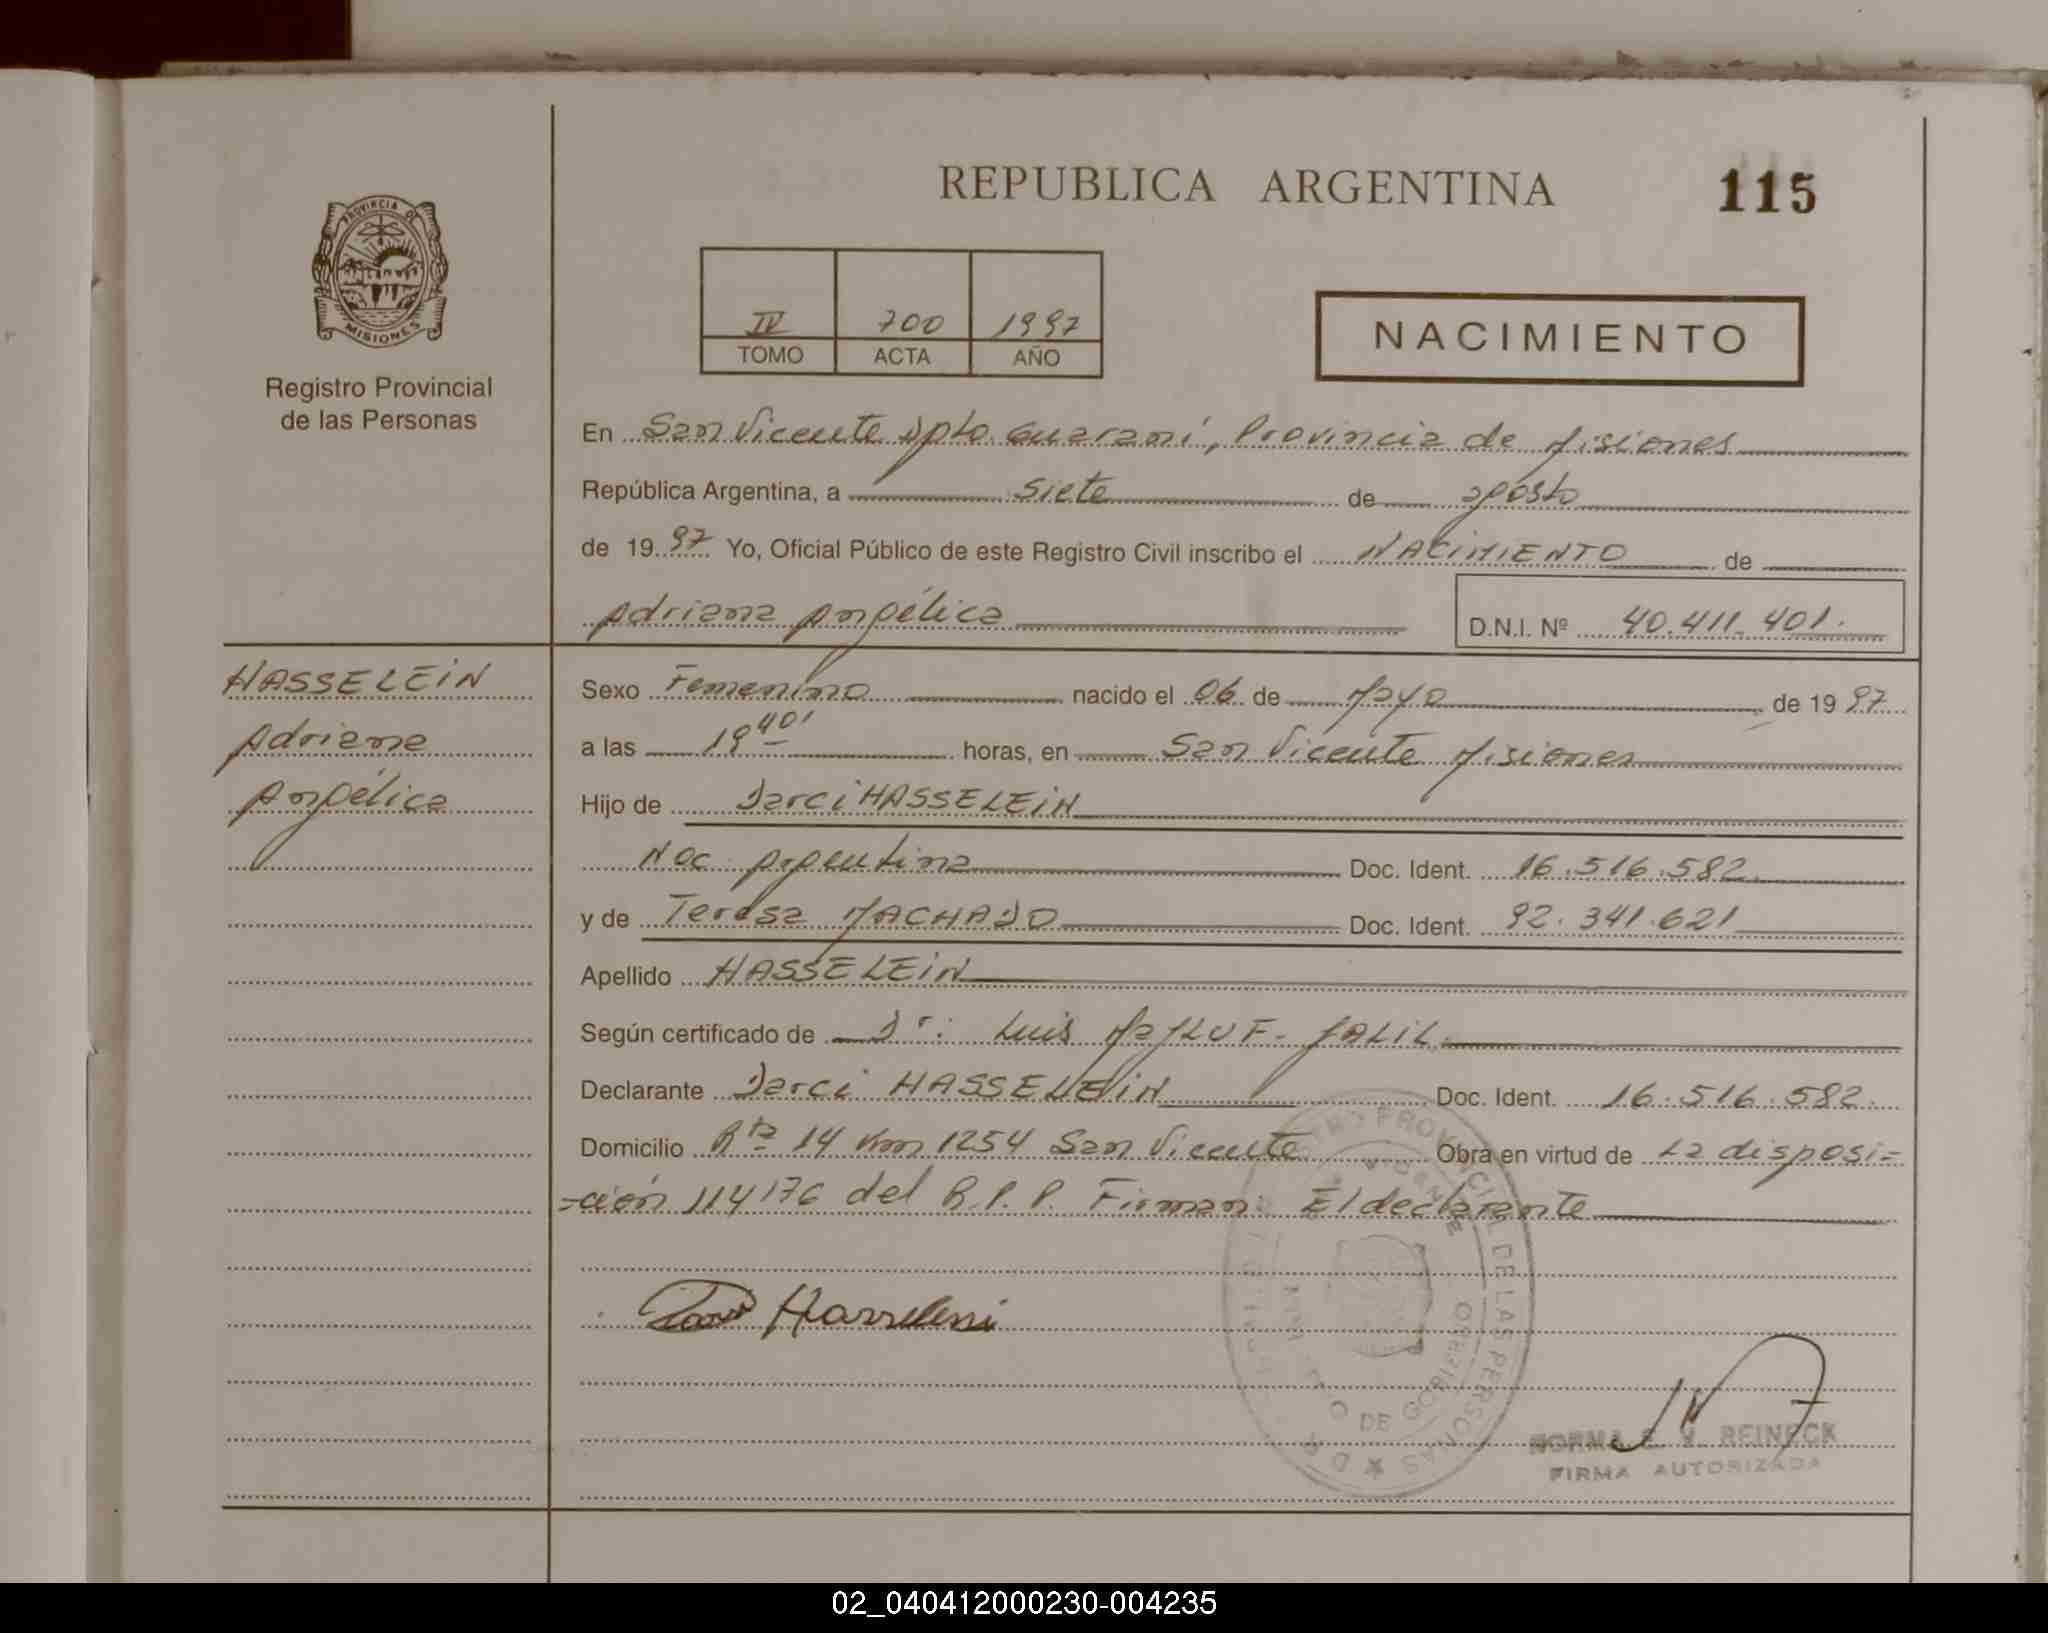 REPUBLICA ARGENTINA
115
PROVINCIA DE
MISIONES
Registro Provincial
de las Personas
IV 700 1997
TOMO ACTA AÑO
NACIMIENTO
En San Vicente Dpto. Guaraní, Provincia de Misiones
República Argentina, a siete de agosto
de 1997 Yo, Oficial Público de este Registro Civil inscribo el NACIMIENTO de
Adriana Angélica D.N.I. Nº 40.411.401.
HASSELEIN
Adriana
Angélica
Sexo Femenino nacido el 06 de Mayo de 1997
a las 19 40' horas, en San Vicente Misiones
Hijo de Darci HASSELEIN
Nac. Argentina Doc. Ident. 16.516.582.
y de Teresa MACHADO Doc. Ident. 92.341.621
Apellido HASSELEIN
Según certificado de Dr: Luis MaJLUF-JALIL
Declarante Darci HASSELEIN Doc. Ident. 16.516.582.
Domicilio Rta 14 Km 1254 San Vicente Obra en virtud de La disposi-
-ción 114176 del R.P.P. Firman: El declarante
Hasselein
REGISTRO PROVINCIAL DE LAS PERSONAS
DE GOBIERNO
NORMA E. V. REINECK
FIRMA AUTORIZADA
02_040412000230-004235